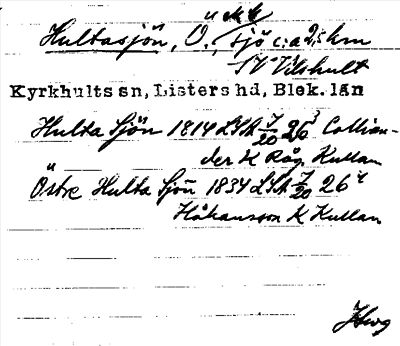 Hultasjön, Ö. sjö c:a 2,5 km
SV Vilshult
Kyrkhults sn, Listers hd, Blek. län
Hulta Sjön 1814 LSA 7/20 26³ Collien-
der K Råg. Kullan
Östre Hulta Sjön 1834 LSA 7/20 26⁴
Håkansson K Kullan